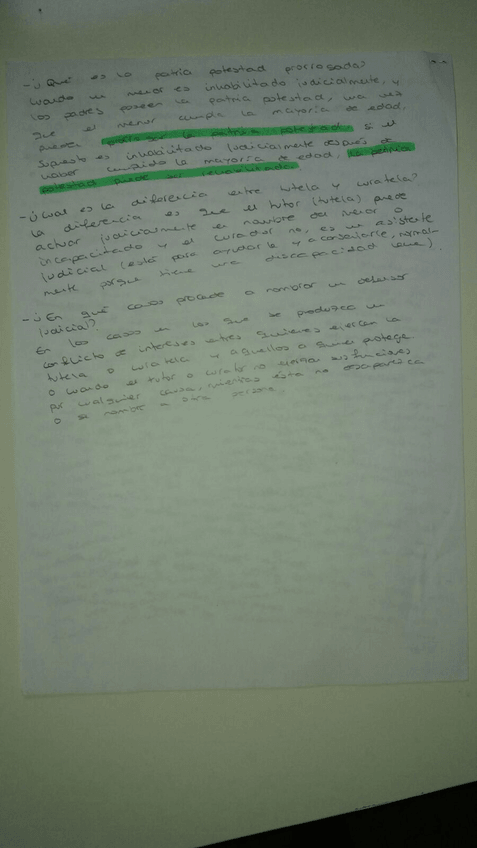 - ¿Qué es la patria potestad prorrogada?
Cuando un menor es inhabilitado judicialmente, y
los padres poseen la patria potestad, una vez
que el menor cumple la mayoría de edad,
puesta la patria potestad. Si el
supuesto es inhabilitado judicialmente después de
haber cumplido la mayoría de edad, la patria
potestad puede ser rehabilitada.
- ¿Cual es la diferencia entre tutela y curatela?
La diferencia es que el tutor (tutela) puede
actuar judicialmente en nombre del menor o
incapacitado y el curador no, es un asistente
judicial (está para ayudarle y aconsejarle, normal-
mente porque tiene una discapacidad leve).
- ¿En qué casos procede a nombrar un defensor
judicial?
En los casos en los que se produzca un
conflicto de intereses entres quienes ejercen la
tutela o curatela y aquellos a quienes protege
o cuando el tutor o curator no ejerzan sus funciones
por cualquier causa, mientras ésta no desaparezca
o se nombre a otra persona.